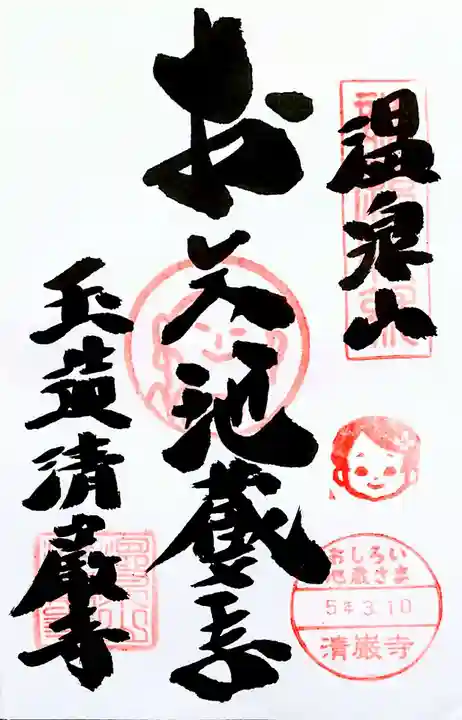 温泉山
お 地蔵
玉造清巖寺
おしろい
地蔵さま
5年3.10
清巌寺